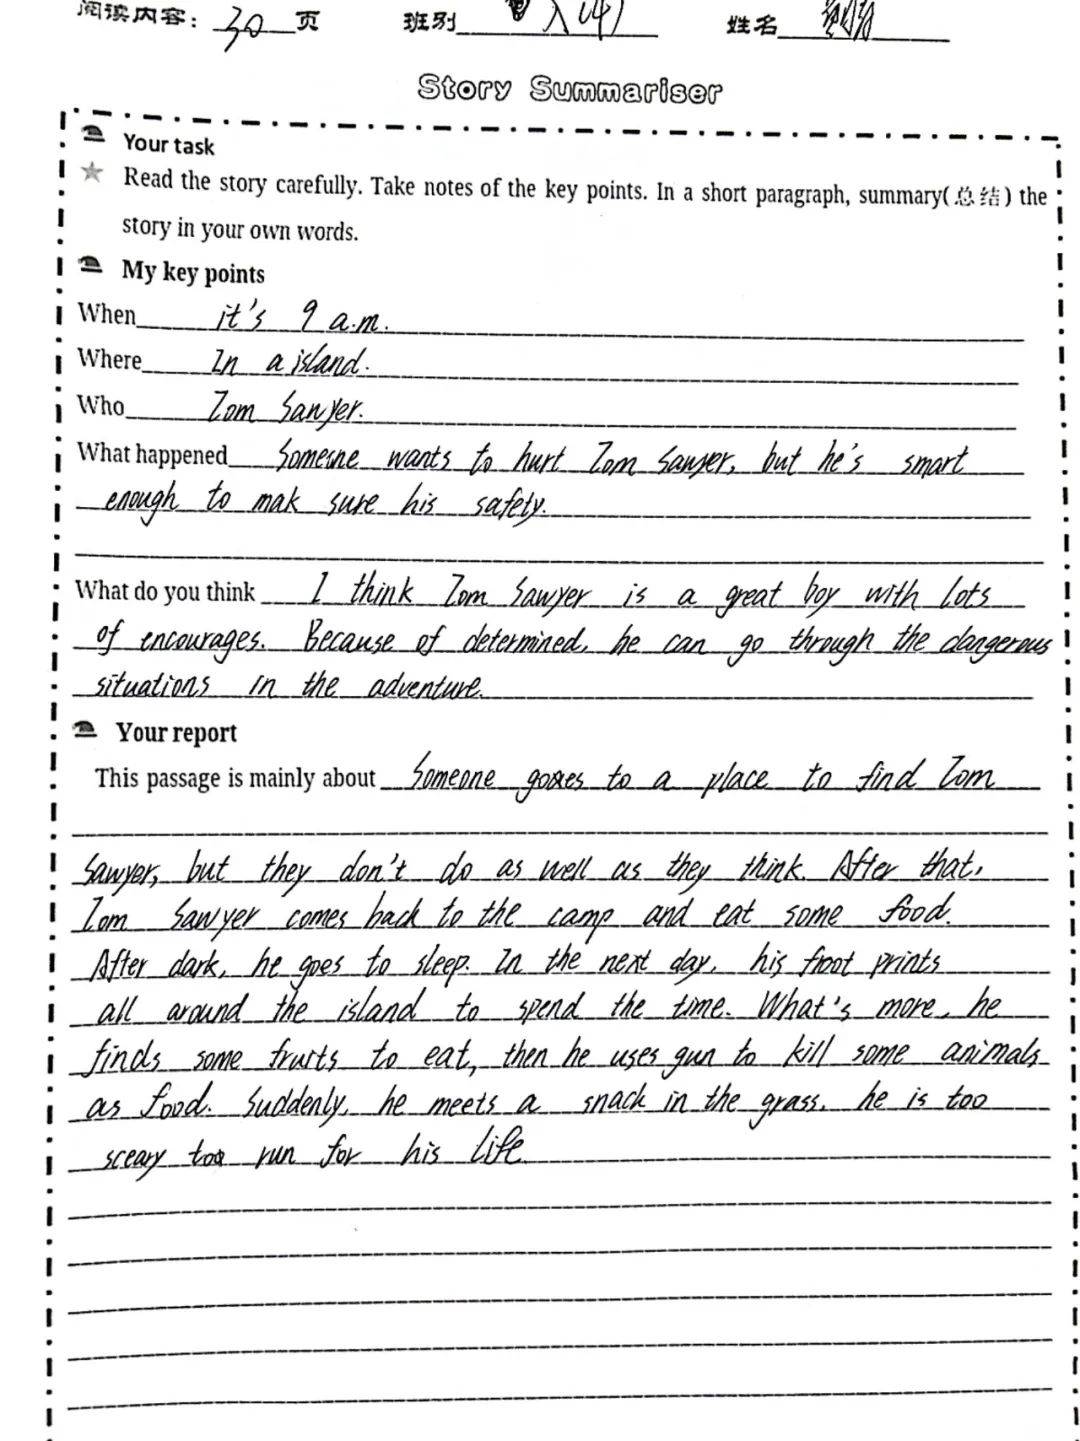 阅读内容: 30 页 班别 八(4) 姓名
Story Summariser
Your task
Read the story carefully. Take notes of the key points. In a short paragraph, summary(总结) the
story in your own words.
My key points
When it's 9 a.m.
Where In a island.
Who Tom Sawyer.
What happened Someone wants to hurt Tom Sawyer, but he's smart
enough to mak sure his safety.
What do you think I think Tom Sawyer is a great boy with lots
of encourages. Because of determined, he can go through the dangerous
situations in the adventure.
Your report
This passage is mainly about Someone goes to a place to find Tom
Sawyer, but they don't do as well as they think. After that,
Tom Sawyer comes back to the camp and eat some food.
After dark, he goes to sleep. In the next day, his froot prints
all around the island to spend the time. What's more, he
finds some fruits to eat, then he uses gun to kill some animals
as food. Suddenly, he meets a snack in the grass. he is too
sceary too run for his life